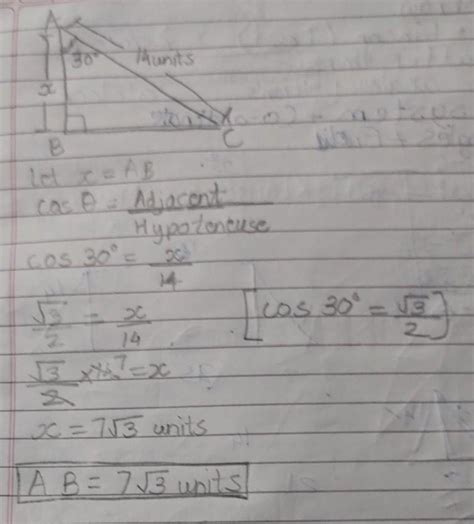 A
30°
14 units
x
B
C
Let x = AB
cos θ = Adjacent / Hypotencuse
cos 30° = x / 14
√3 / 2 = x / 14
[cos 30° = √3 / 2]
√3 / 2 × 14 7 = x
x = 7√3 units
AB = 7√3 units